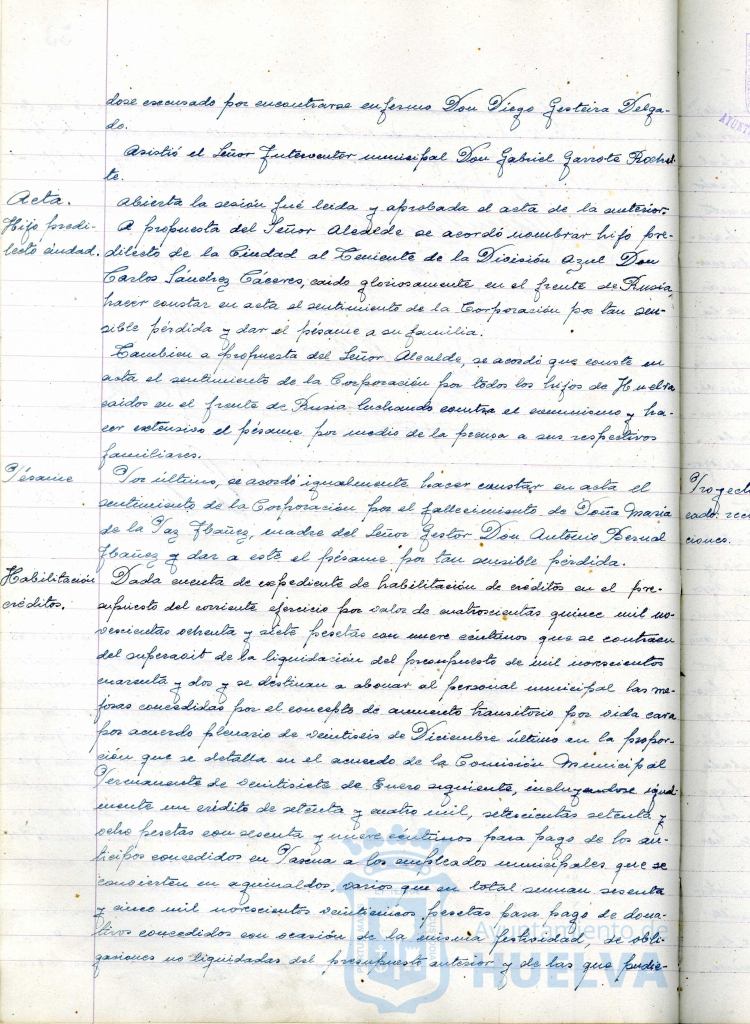 dose excusado por encontrarse enfermo Don Diego Gesteira Delga-
do.
Asistió el Señor Interventor municipal Don Gabriel Garrote
te.
Acta.
abierta la sesión fué leida y aprobada el acta de la anterior.
Hijo predi-
lecto ciudad.
A propuesta del Señor Alcalde se acordó nombrar hijo pre-
dilecto de la Ciudad al Teniente de la División Azul Don
Carlos Sánchez Cáceres, caido gloriosamente en el frente de Rusia,
hacer constar en acta el sentimiento de la Corporación por tan sen-
sible pérdida y dar el pésame a su familia.
Tambien a propuesta del Señor Alcalde, se acordó que conste en
acta el sentimiento de la Corporación por todos los hijos de Huelva
caidos en el frente de Rusia luchando contra el comunismo y ha-
cer extensivo el pésame por medio de la prensa a sus respectivos
familiares.
Pésame
Por último, se acordó igualmente hacer constar en acta el
sentimiento de la Corporación por el fallecimiento de Doña Maria
de la Paz Ibañez, madre del Señor Gestor Don Antonio Bernal
Ibañez y dar a este el pésame por tan sensible pérdida.
Habilitación
créditos.
Dada cuenta de expediente de habilitación de créditos en el pre-
supuesto del corriente ejercicio por valor de cuatroscientas quince mil no-
vescientas ochenta y siete pesetas con nueve centimos que se contraen
del superavit de la liquidación del presupuesto de mil novescientos
cuarenta y dos y se destinan a abonar al personal municipal las me-
joras concedidas por el concepto de aumento transitorio por vida cara
por acuerdo plenario de veintiseis de Diciembre último en la propor-
ción que se detalla en el acuerdo de la Comisión Municipal
Permanente de veintisiete de Enero siguiente, incluyendose igual-
mente un crédito de setenta y cuatro mil, setescientas setenta y
ocho pesetas con sesenta y nueve centimos para pago de los an-
ticipos concedidos en Pascua a los empleados municipales que se
convierten en aguinaldos, varios que en total suman sesenta
y cinco mil novescientos veinticinco pesetas para pago de dona-
tivos concedidos con ocasión de la misma festividad, de obli-
gaciones no liquidadas del presupuesto anterior y de las que pudie-
Proyect
cado
ciones.
Ayuntamiento de
HUELVA